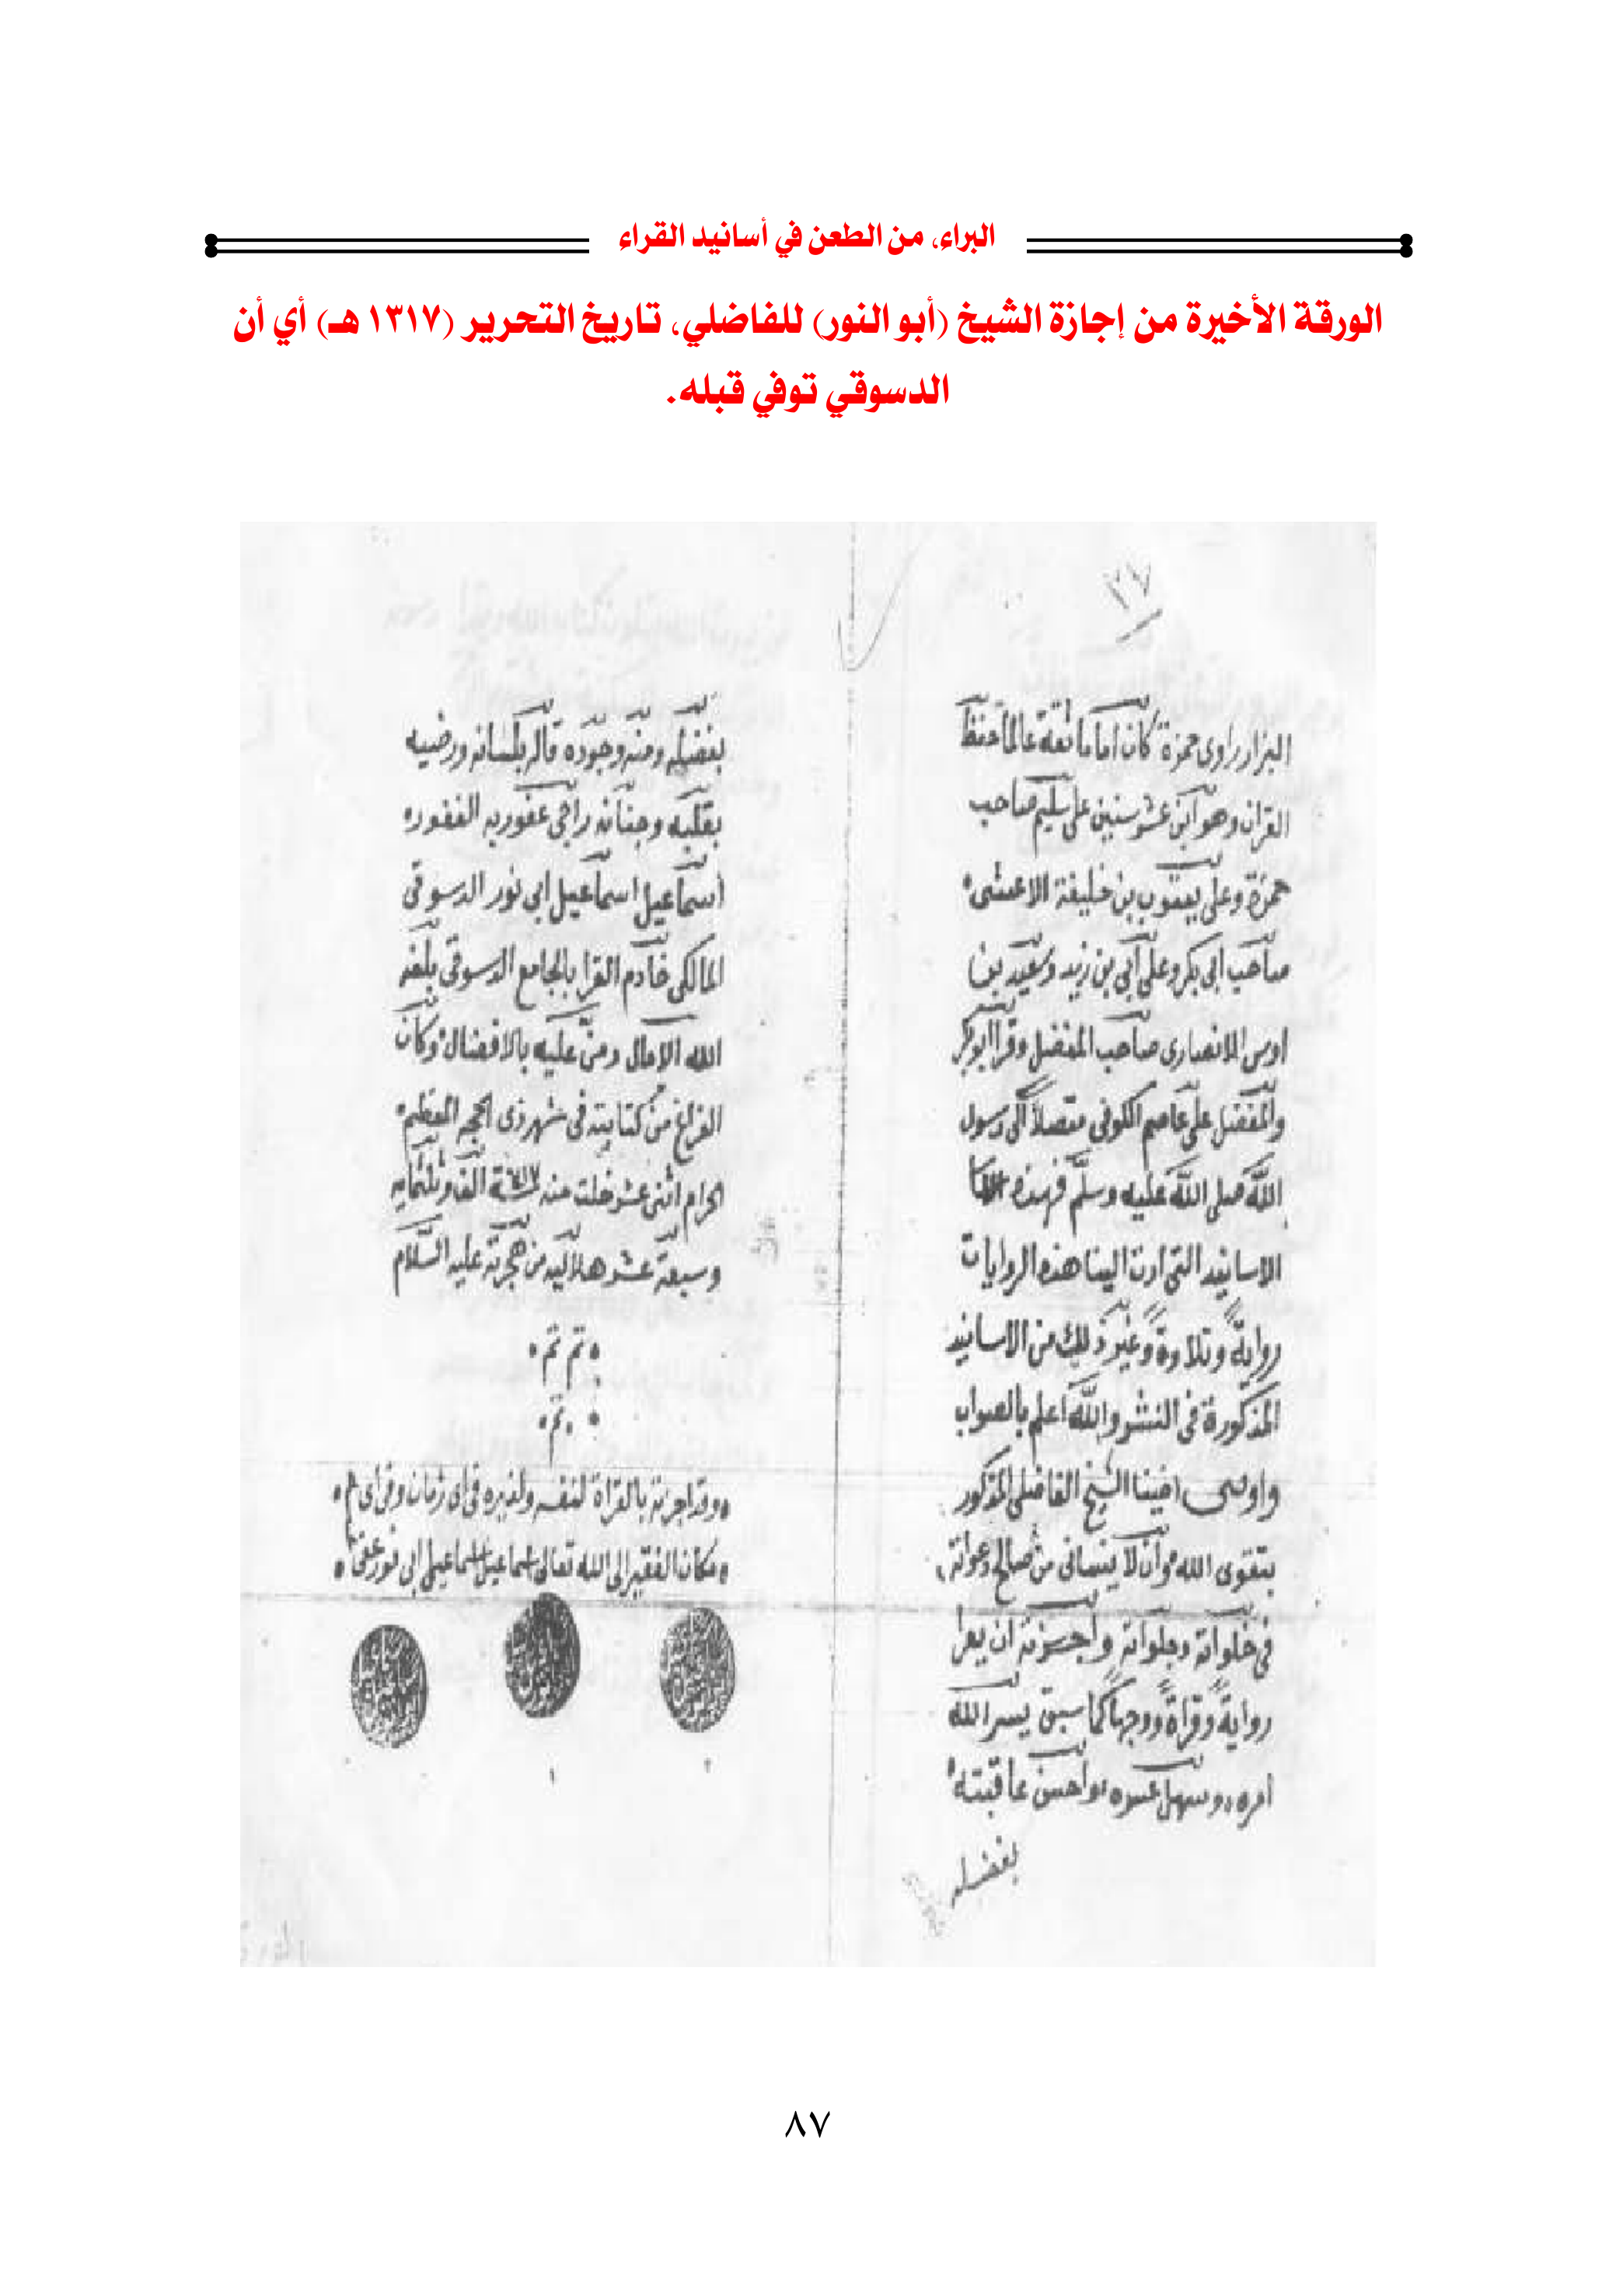 البراء، من الطعن في أسانيد القراء
الورقة الأخيرة من إجازة الشيخ (أبو النور) للفاضلي، تاريخ التحرير (١٣١٧ هـ) أي أن
الدسوقي توفي قبله.
٣٧
البزار راوى حمزة كان اماما ثقة عالما حفظ
القران وهو ابن عشر سنين على سليم صاحب
حمزة وعلى يعقوب بن خليفة الاعشى
صاحب ابى بكر وعلى ابى بن زيد وسعيد بن
اوس الانصارى صاحب المفضل وقرا ابو بكر
والمفضل على عاصم الكوفى متصلا الى رسول
الله صلى الله عليه وسلم فهذه
الاسانيد التى ادت الينا هذه الروايات
رواية وتلاوة وغير ذلك من الاسانيد
المذكورة فى النشر والله اعلم بالصواب
واوصى اخينا الشيخ الفاضلى المذكور
بتقوى الله وان لا ينسانى من صالح دعواته
فى خلواته وجلواته واجزته ان يقرا
رواية وقراة ووجها كما سبق يسر الله
امره وسهل عسره واحسن عاقبته
بفضله
بفضله ومنه وجوده قاله بلسانه ورضيه
بقلبه وجنانه راجى عفو ربه الغفور
اسماعيل اسماعيل ابى نور الدسوقى
المالكى خادم القرا بالجامع الدسوقى بلغه
الله الامال ومن عليه بالافضال وكان
الفراغ من كتابته فى شهر ذى الحجه المعظم
الحرام اثنى عشر خلت منه سنة الف وثلثمايه
وسبعة عشر هلاليه من هجرته عليه السلام
تم تم
تم
وقد اجزته بالقراة لنفسه ولغيره فى اى زمان وفى اى م
مكان الفقير الى الله تعالى اسماعيل اسماعيل ابى نور عفى
٨٧